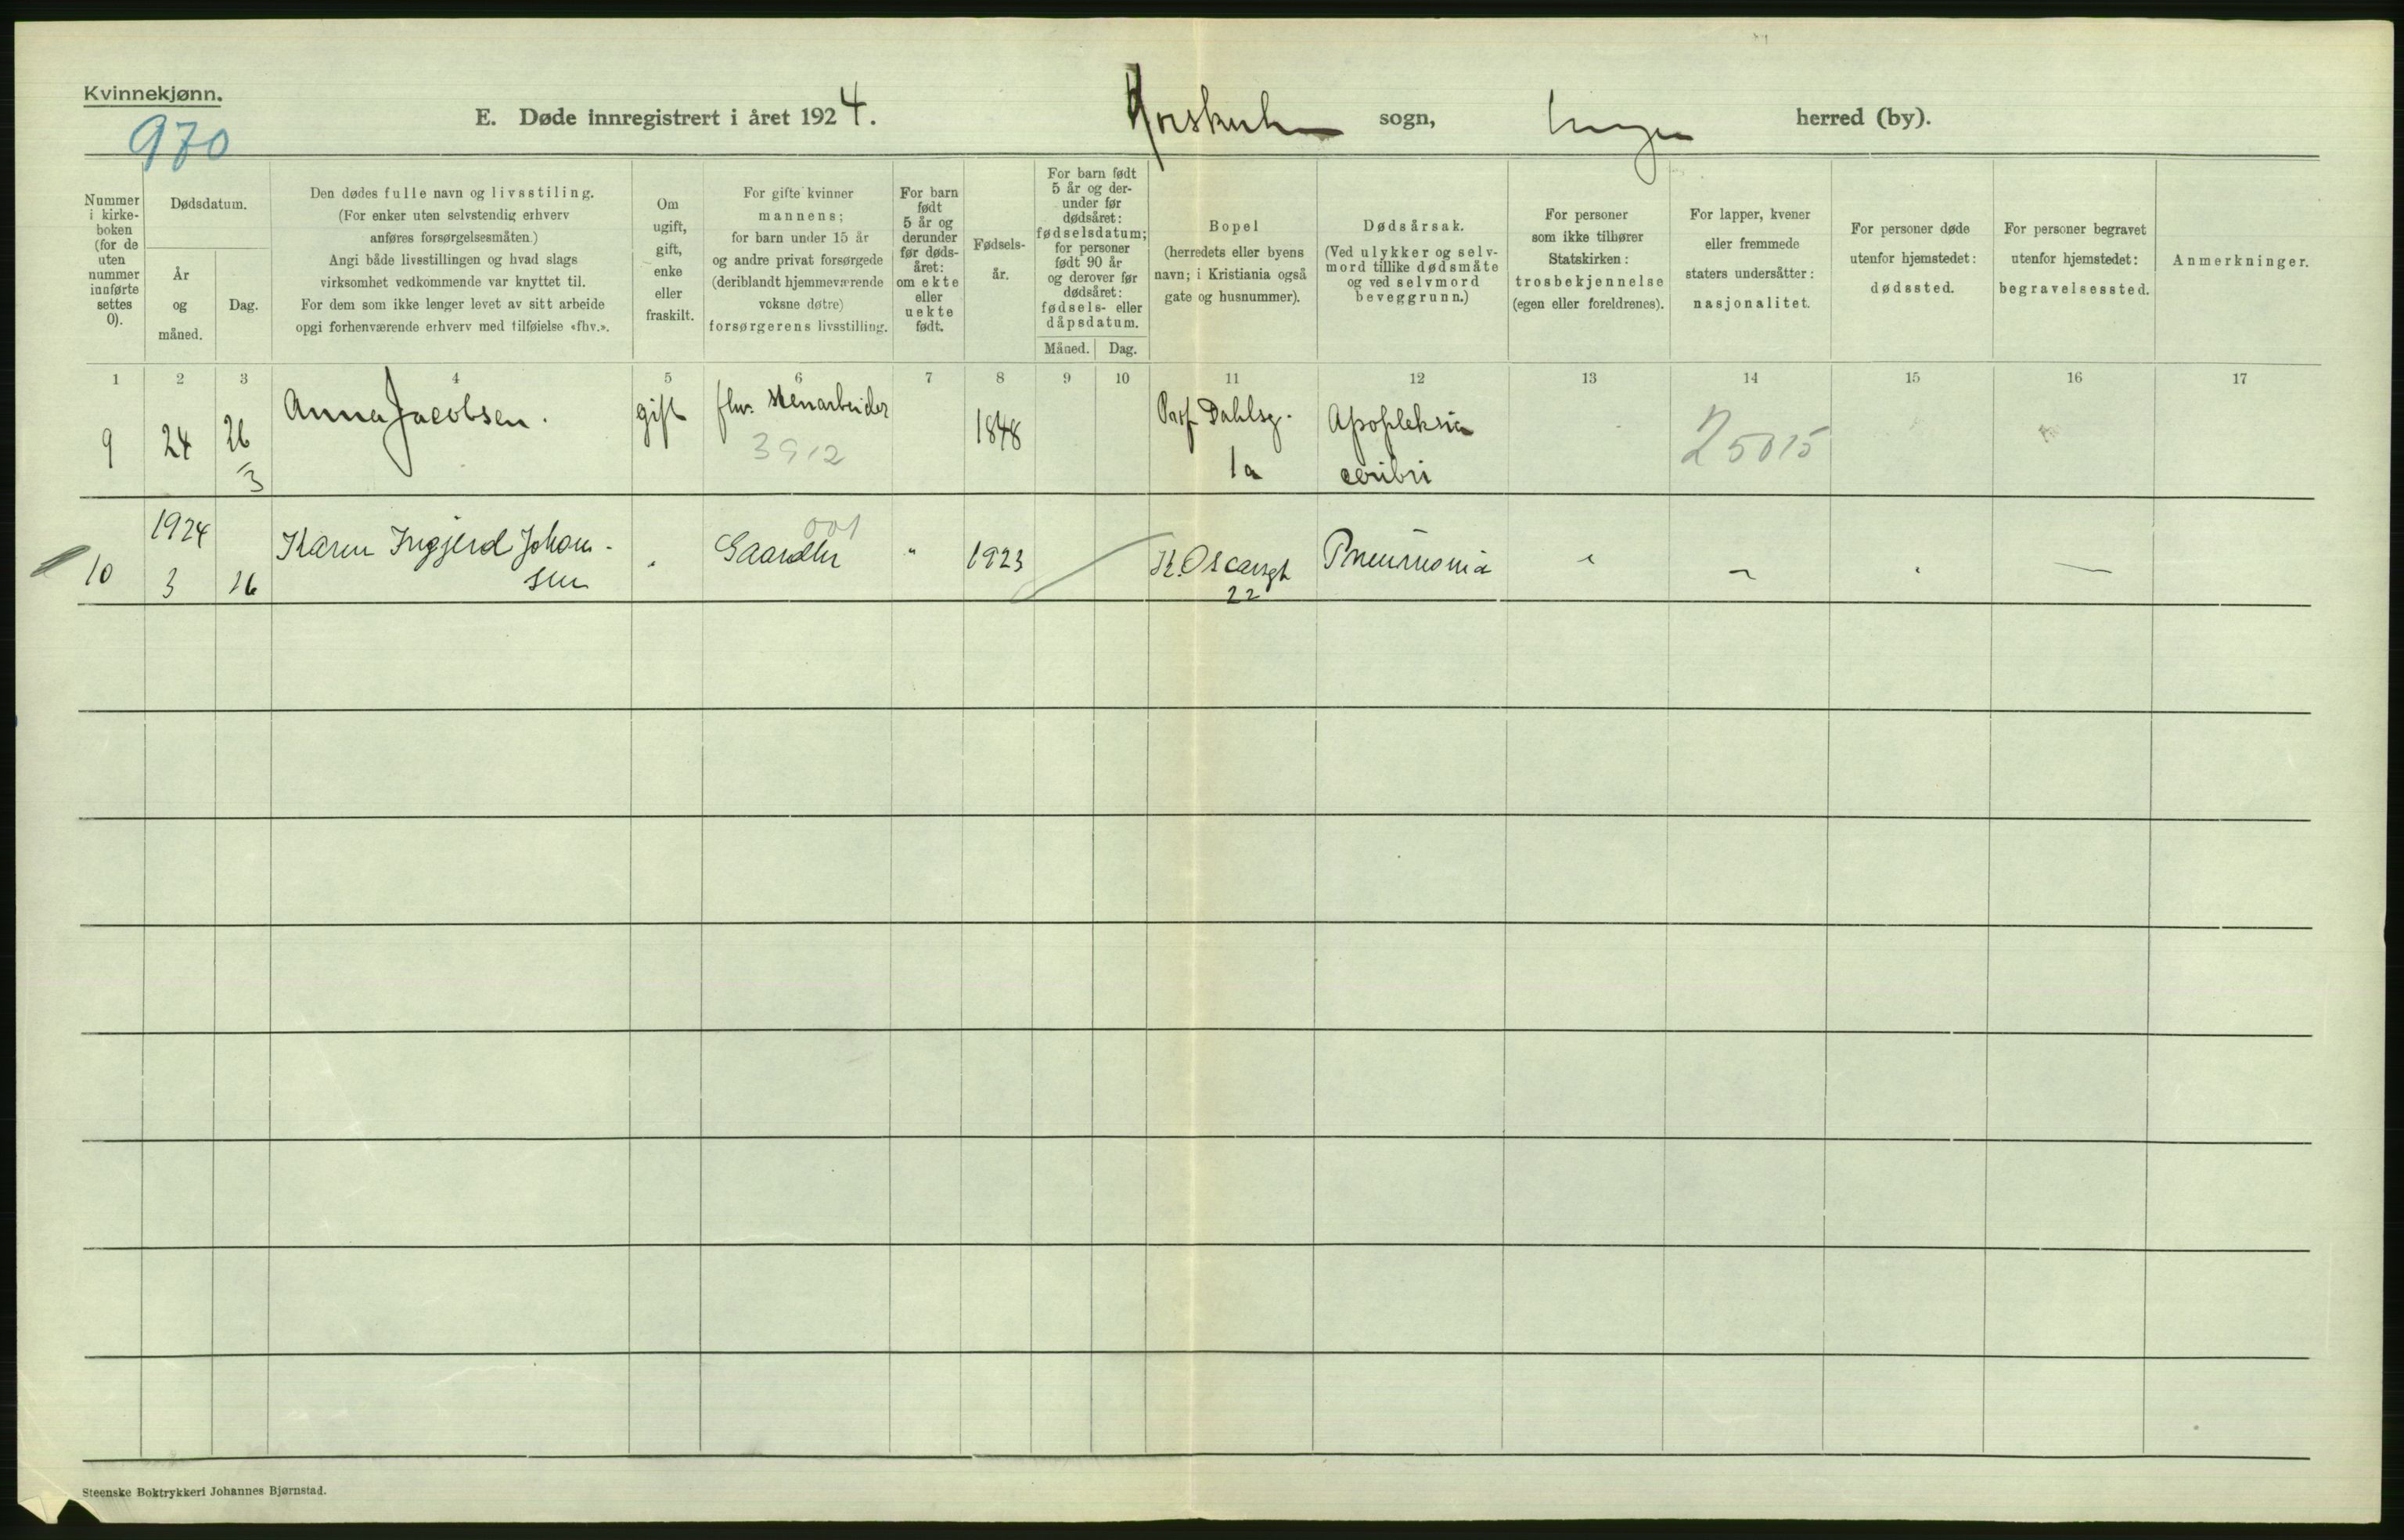 Kvinnekjønn.
970
E. Døde innregistrert i året 1924. sogn, herred (by).
Nummer
i kirke-
boken
(for de
uten
nummer
innførte
settes
0).
Dødsdatum.
År
og
måned.
Dag.
Den dødes fulle navn og livsstiling.
(For enker uten selvstendig erhverv
anføres forsørgelsesmåten.)
Angi både livsstillingen og hvad slags
virksomhet vedkommende var knyttet til.
For dem som ikke lenger levet av sitt arbeide
opgi forhenværende erhverv med tilføielse «fhv.».
Om
ugift,
gift,
enke
eller
fraskilt.
For gifte kvinner
mannens;
for barn under 15 år
og andre privat forsørgede
(deriblandt hjemmeværende
voksne døtre)
forsørgerens livsstilling.
For barn
født
5 år og
derunder
før døds-
året:
om ekte
eller
uekte
født.
Fødsels-
år.
For barn født
5 år og der-
under før
dødsåret:
fødselsdatum;
for personer
født 90 år
og derover før
dødsåret:
fødsels- eller
dåpsdatum.
Måned. Dag.
Bopel
(herredets eller byens
navn; i Kristiania også
gate og husnummer).
Dødsårsak.
(Ved ulykker og selv-
mord tillike dødsmåte
og ved selvmord
beveggrunn.)
For personer
som ikke tilhører
Statskirken:
trosbekjennelse
(egen eller foreldrenes).
For lapper, kvener
eller fremmede
staters undersåtter:
nasjonalitet.
For personer døde
utenfor hjemstedet:
dødssted.
For personer begravet
utenfor hjemstedet:
begravelsessted.
Anmerkninger.
1 2 3 4 5 6 7 8 9 10 11 12 13 14 15 16 17
9 24 26 Anna Jacobsen. gift fhv. stenarbeider 1848 Prof Dahlsg. Apopleksia
3 3912 1a ceribri 25015
1924 Karen Ingjerd Johan- 001
10 3 26 sen " Gaardbr " 1923 K. Oscarsgt Pneumonia " - " —
22
Steenske Boktrykkeri Johannes Bjørnstad.